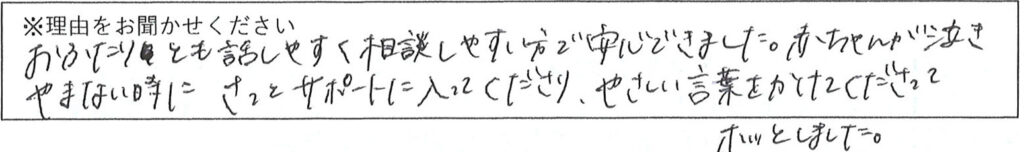 ※理由をお聞かせください
おふたりとも話しやすく相談しやすい方で安心できました。赤ちゃんが泣き
やまない時に さっとサポートに入ってくださり、やさしい言葉をかけてくださって
ホッとしました。